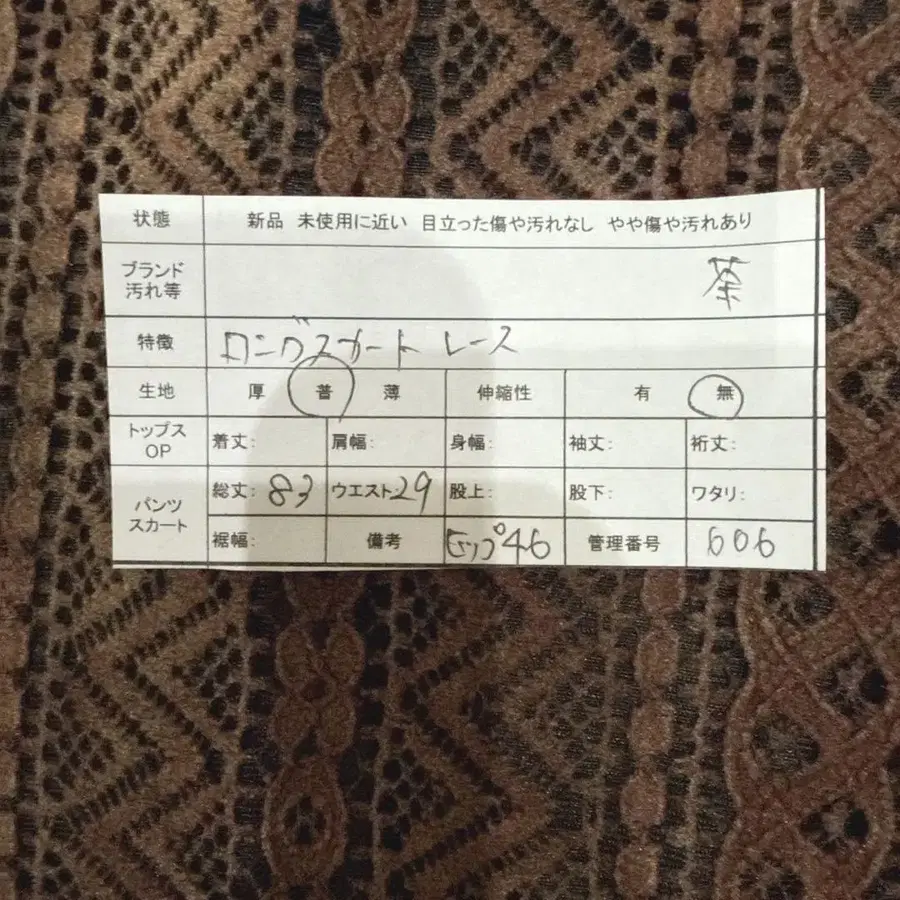 状態 新品 未使用に近い 目立った傷や汚れなし やや傷や汚れあり
ブランド 茶
汚れ等
特徴 ロングスカート レース
生地 厚 普 薄 伸縮性 有 無
トップス OP 着丈: 肩幅: 身幅: 袖丈: 裄丈:
パンツ スカート 総丈: 83 ウエスト 29 股上: 股下: ワタリ:
裾幅: 備考 ヒップ46 管理番号 606